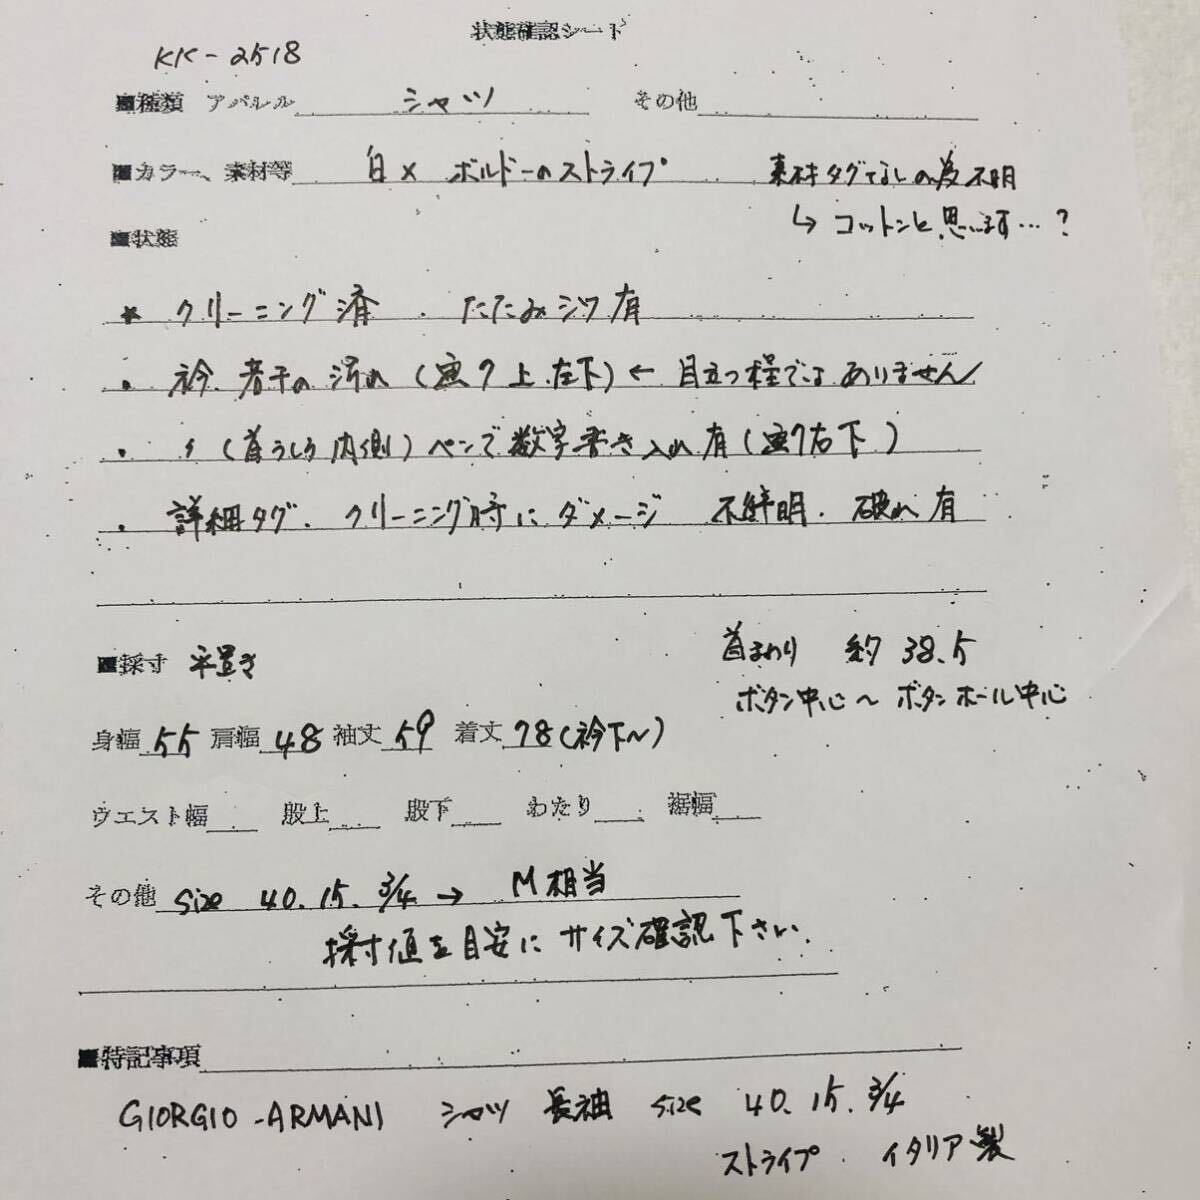 状態確認シート
KK-2518
■種類 アパレル シャツ その他
■カラー、素材等 白× ボルドーのストライプ 素材タグなしの為不明
↳ コットンと思います…?
■状態
* クリーニング済 . たたみジワ有
・ 衿 若干の汚れ (画7 上 左下) ← 目立つ程ではありません
・ 〃 (首うしろ内側) ペンで数字書き入れ有 (画7右下)
・ 詳細タグ、クリーニング時にダメージ 不鮮明. 破れ有
■採寸 平置き 首まわり 約 38.5
ボタン中心〜ボタンホール中心
身幅 55 肩幅 48 袖丈 59 着丈 78(衿下〜)
ウエスト幅 股上 股下 わたり 裾幅
その他 size 40. 15. 3/4 → M相当
採寸値を目安にサイズ確認下さい.
■特記事項
GIORGIO-ARMANI シャツ 長袖 size 40. 15. 3/4
ストライプ . イタリア製